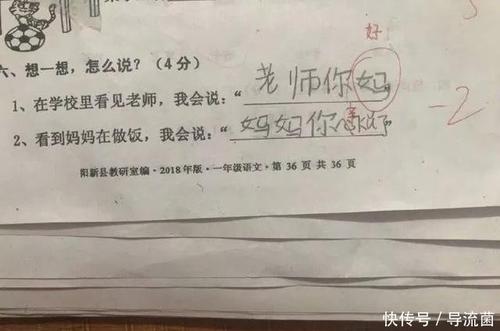 好
六、想一想，怎么说？（4分）
1、在学校里看见老师，我会说：“老师你妈
-2
2、看到妈妈在做饭，我会说：“妈妈你辛
阳新县教研室编·2018年版·一年级语文·第 36 页 共 36 页
快传号 / 导流菌